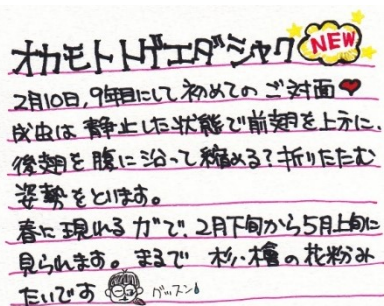 オカモトトゲエダシャク NEW
2月10日,9年目にして初めてのご対面❤
成虫は静止した状態で前翅を上方に、
後翅を腹に沿って縮める?折りたたむ
姿勢をとります。
春に現れるガで、2月下旬から5月上旬に
見られます。まるで杉、檜の花粉み
たいです グッスン